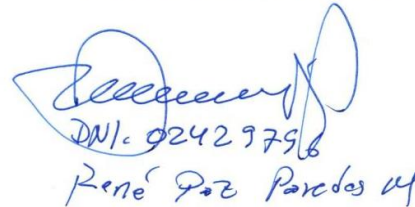 DNI. 02429796
René Paz Paredes M